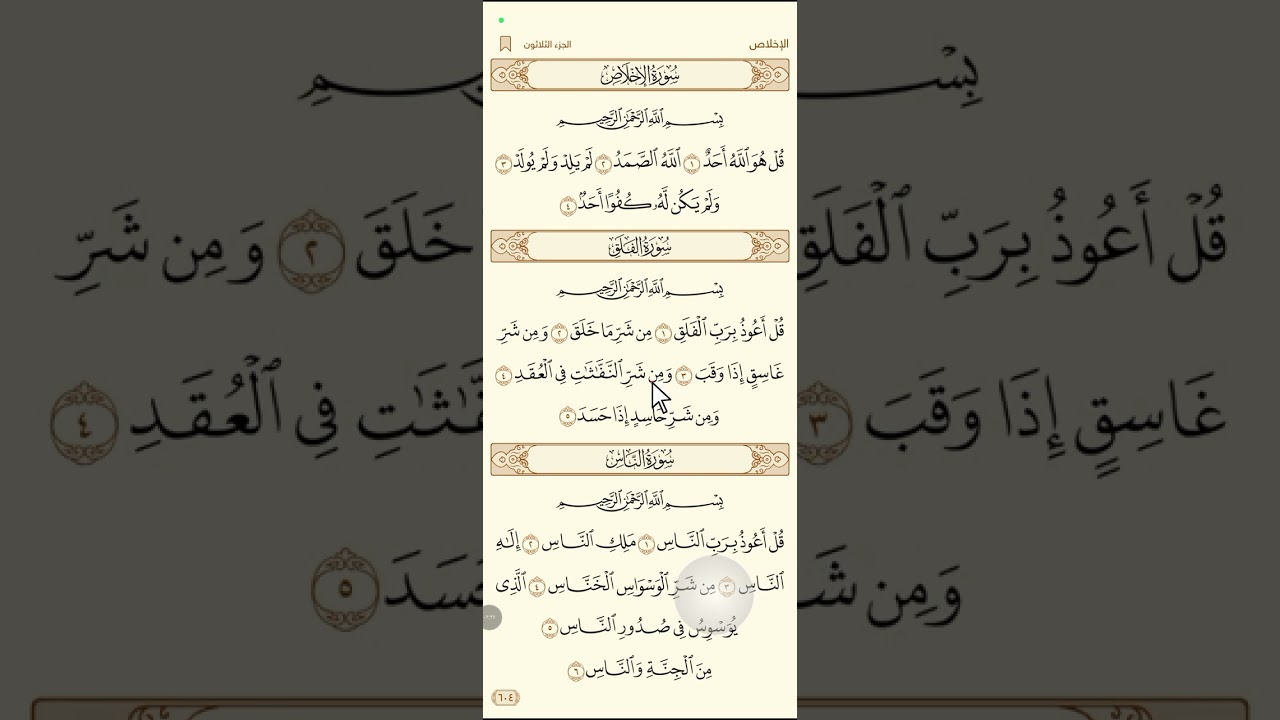 الإخلاص
الجزء الثلاثون
سُورَةُ الإِخْلَاصِ
بِسْمِ ٱللَّهِ ٱلرَّحْمَٰنِ ٱلرَّحِيمِ
قُلْ هُوَ ٱللَّهُ أَحَدٌ ١ ٱللَّهُ ٱلصَّمَدُ ٢ لَمْ يَلِدْ وَلَمْ يُولَدْ ٣
وَلَمْ يَكُن لَّهُۥ كُفُوًا أَحَدٌۢ ٤
سُورَةُ الفَلَقِ
بِسْمِ ٱللَّهِ ٱلرَّحْمَٰنِ ٱلرَّحِيمِ
قُلْ أَعُوذُ بِرَبِّ ٱلْفَلَقِ ١ مِن شَرِّ مَا خَلَقَ ٢ وَمِن شَرِّ
غَاسِقٍ إِذَا وَقَبَ ٣ وَمِن شَرِّ ٱلنَّفَّٰثَٰتِ فِى ٱلْعُقَدِ ٤
وَمِن شَرِّ حَاسِدٍ إِذَا حَسَدَ ٥
سُورَةُ النَّاسِ
بِسْمِ ٱللَّهِ ٱلرَّحْمَٰنِ ٱلرَّحِيمِ
قُلْ أَعُوذُ بِرَبِّ ٱلنَّاسِ ١ مَلِكِ ٱلنَّاسِ ٢ إِلَٰهِ
ٱلنَّاسِ ٣ مِن شَرِّ ٱلْوَسْوَاسِ ٱلْخَنَّاسِ ٤ ٱلَّذِى
يُوَسْوِسُ فِى صُدُورِ ٱلنَّاسِ ٥
مِنَ ٱلْجِنَّةِ وَٱلنَّاسِ ٦
٦٠٤